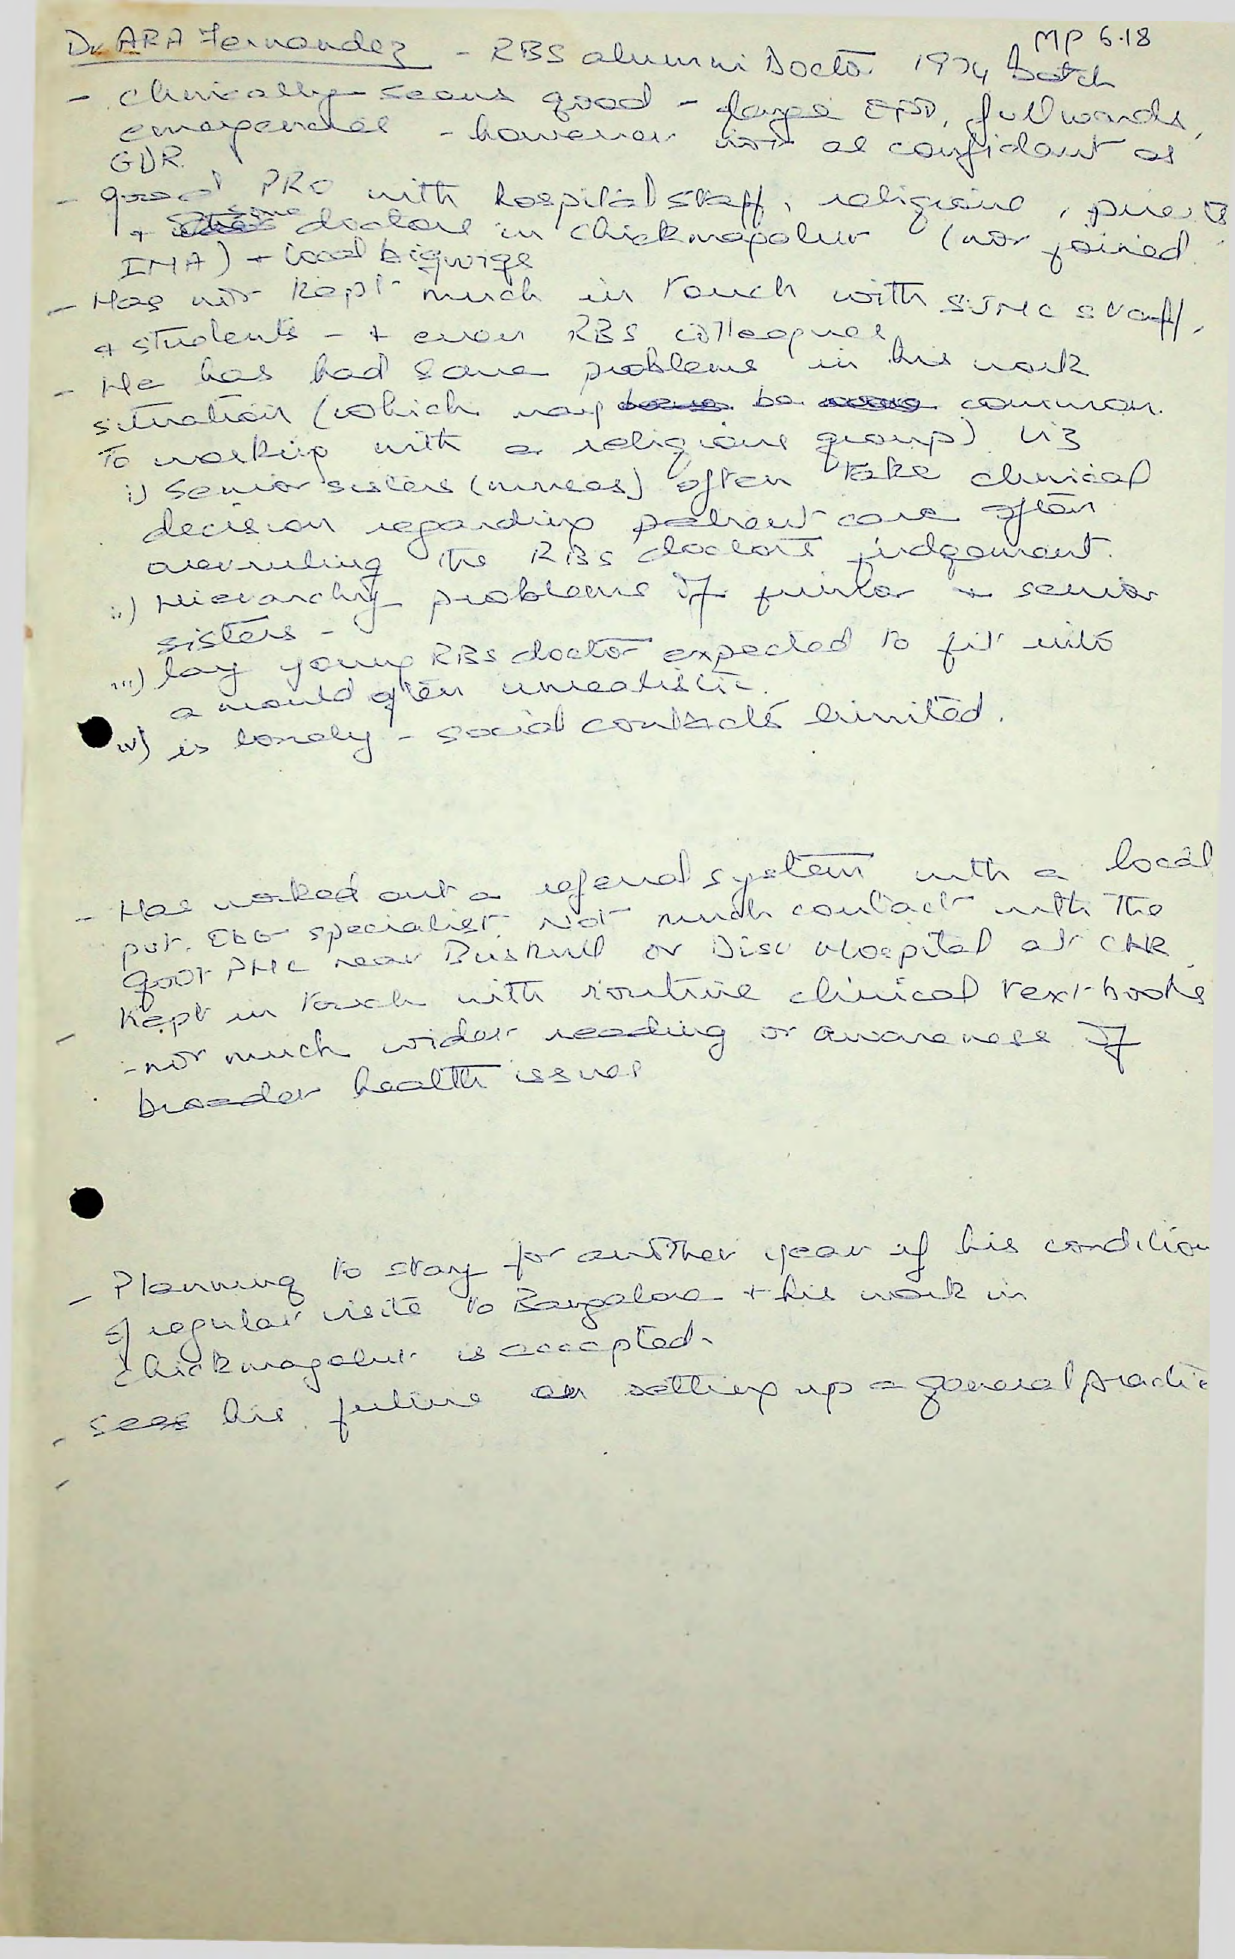 MP 6.18
Dr ARA Fernandez - RBS alumni Doctor 1974 batch
- clinically seems good - large OPD, full wards,
emergencies - however not as confident as
GDR
- good PRO with hospital staff, religious, priests
+ some doctors in Chickmagalur (not joined
IMA) + local bigwigs
- Has not kept much in touch with SJMC staff,
+ students - + even RBS colleagues
- He has had some problems in his work
situation (which may be common
to working with a religious group) viz
i) Senior sisters (nurses) often take clinical
decision regarding patient care often
overruling the RBS doctors judgement.
ii) Hierarchy problems of junior + senior
sisters -
iii) lay young RBS doctor expected to fit into
a mould often unrealistic.
iv) is lonely - social contacts limited.
- Has worked out a referral system with a local
pvt. specialist. Not much contact with the
govt PHC near or Dist Hospital at CKR.
- Kept in touch with routine clinical text-books
- not much wider reading or awareness of
broader health issues
- Planning to stay for another year if his condition
of regular visits to Bangalore + his work in
Chickmagalur is accepted.
- sees his future as setting up a general practice
-